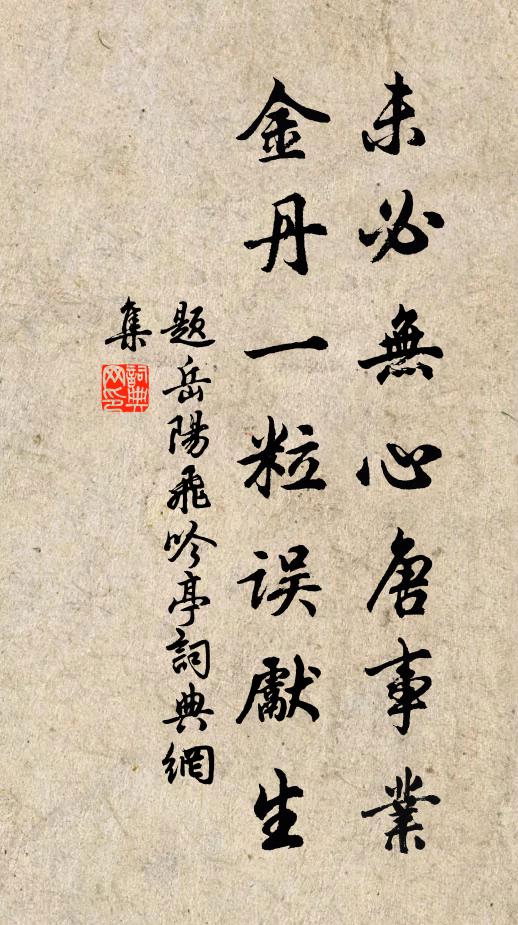 未必無心唐事業
金丹一粒误獻生
題岳陽飛吟亭詞典網
集
詞典網印